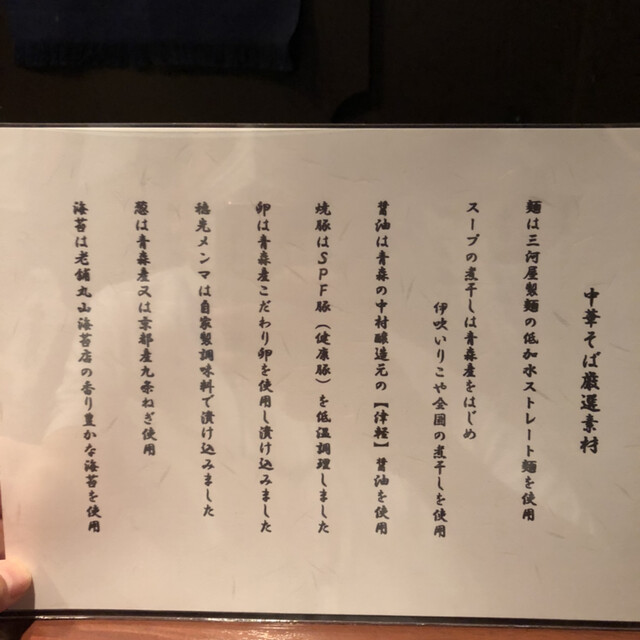 中華そば厳選素材
麺は三河屋製麺の低加水ストレート麺を使用
スープの煮干しは青森産をはじめ
伊吹いりこや全国の煮干しを使用
醤油は青森の中村醸造元の【津軽】醤油を使用
焼豚はSPF豚（健康豚）を低温調理しました
卵は青森産こだわり卵を使用し漬け込みました
穂先メンマは自家製調味料で漬け込みました
葱は青森産又は京都産九条ねぎ使用
海苔は老舗丸山海苔店の香り豊かな海苔を使用